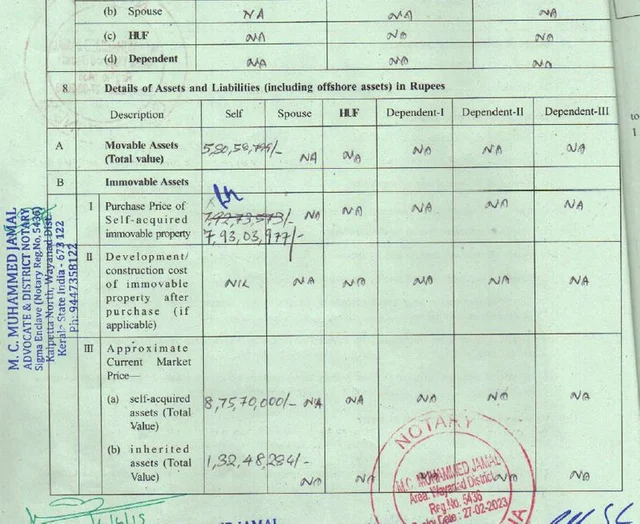 (b) Spouse NA NA NA
(c) HUF NA NA NA
(d) Dependent NA NA NA
8. Details of Assets and Liabilities (including offshore assets) in Rupees
Description Self Spouse HUF Dependent-I Dependent-II Dependent-III
A Movable Assets
(Total value) NA NA NA NA NA
B Immovable Assets
I Purchase Price of
Self-acquired 7,92,73,573/- NA NA NA NA NA
immovable property 7,93,03,977/-
II Development/
construction cost
of immovable NIL NA NA NA NA NA
property after
purchase (if
applicable)
III Approximate
Current Market
Price—
(a) self-acquired 8,75,70,000/- NA NA NA NA NA
assets (Total
Value)
(b) inherited 1,32,48,284/-
assets (Total NA NA NA NA NA
Value)
M. C. MUHAMMED JAMAL
ADVOCATE & DISTRICT NOTARY
Sigma Enclave (Notary Reg.No. 5436)
Kalpetta North, Wayanad Dist.
Kerala State India - 673 122
Ph: 9447358122
NOTARY
M.C. MUHAMMED JAMAL
Area: Wayanad District
Reg.No: 5436
Expiry Date : 27-02-2023
JAMAL
to
1